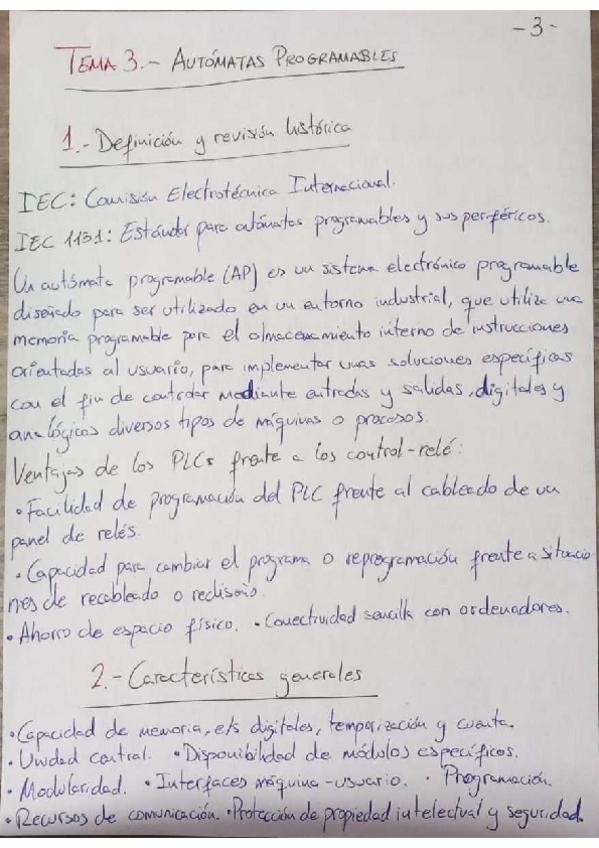 -3-
TEMA 3.- AUTÓMATAS PROGRAMABLES
1.- Definición y revisión histórica
IEC: Comisión Electrotécnica Internacional.
IEC 1131: Estándar para autómatas programables y sus periféricos.
Un autómata programable (AP) es un sistema electrónico programable
diseñado para ser utilizado en un entorno industrial, que utiliza una
memoria programable para el almacenamiento interno de instrucciones
orientadas al usuario, para implementar unas soluciones específicas
con el fin de controlar mediante entradas y salidas, digitales y
analógicas diversos tipos de máquinas o procesos.
Ventajas de los PLCs frente a los control-relé:
• Facilidad de programación del PLC frente al cableado de un
panel de relés.
• Capacidad para cambiar el programa o reprogramación frente a situacio
nes de recableado o rediseño.
• Ahorro de espacio físico. • Conectividad sencilla con ordenadores.
2.- Características generales
• Capacidad de memoria, e/s digitales, temporización y cuenta.
• Unidad central. • Disponibilidad de módulos específicos.
• Modularidad. • Interfaces máquina-usuario. • Programación.
• Recursos de comunicación. • Protección de propiedad intelectual y seguridad.